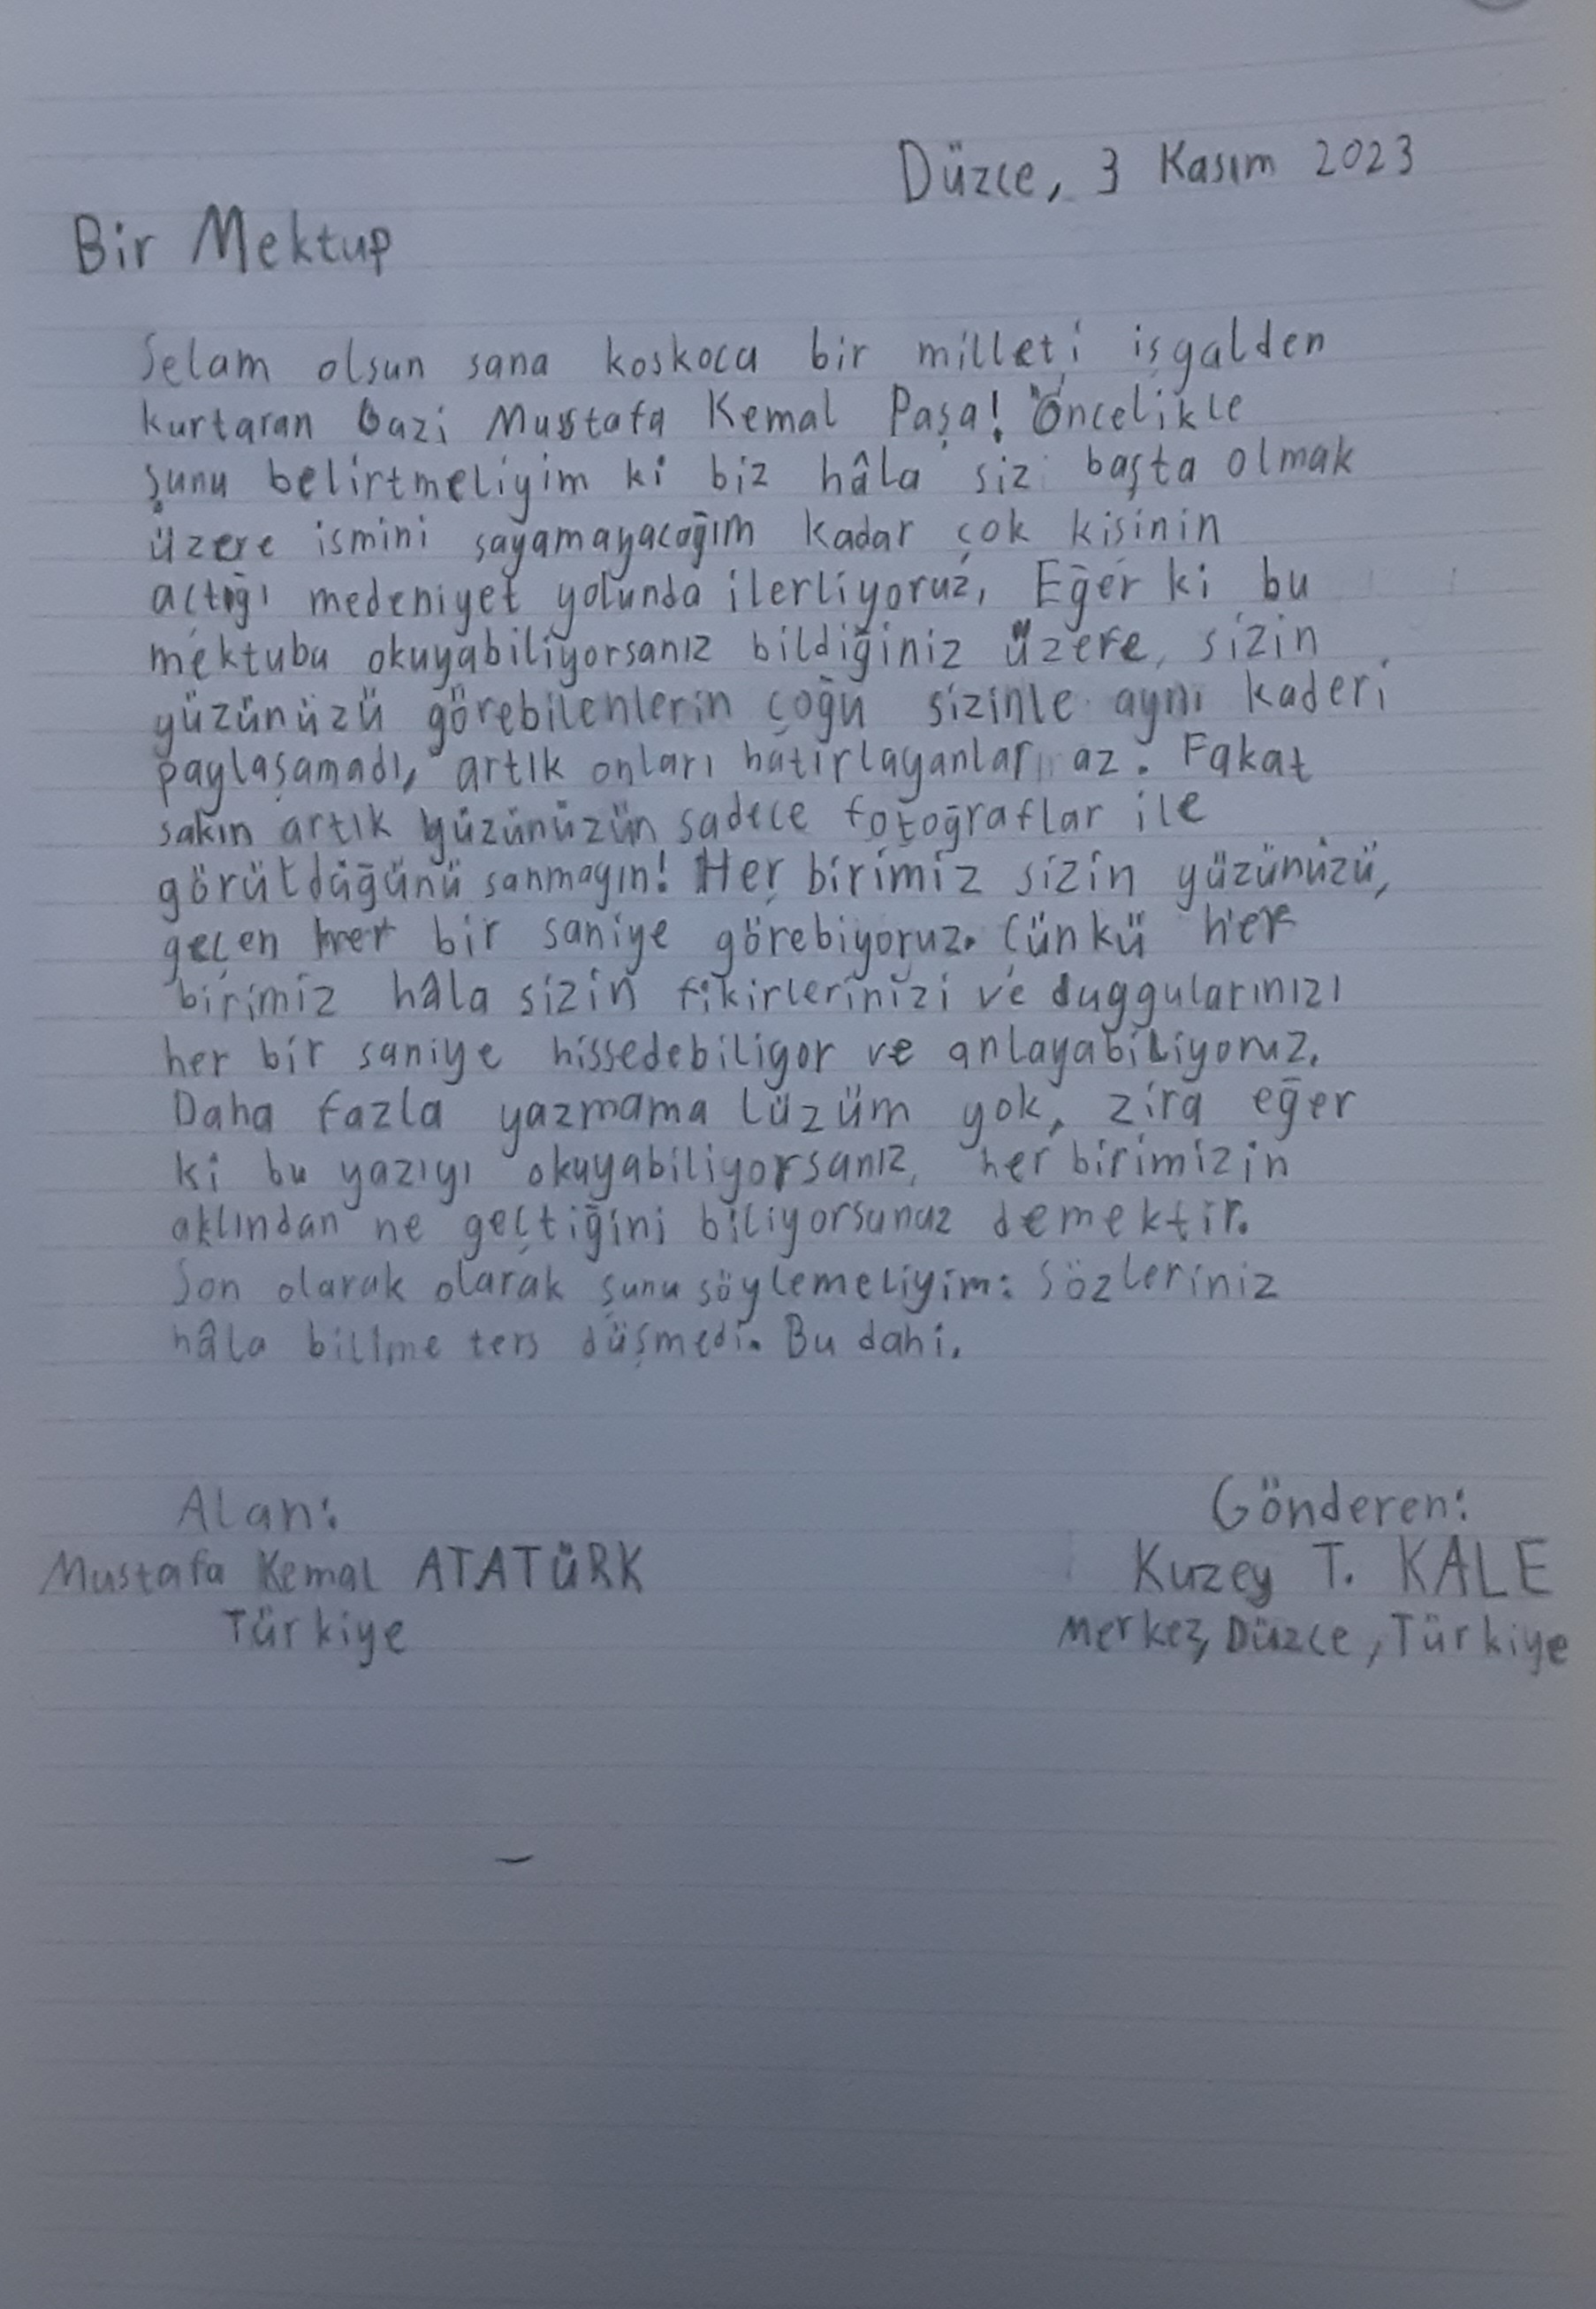 Düzce, 3 Kasım 2023
Bir Mektup
Selam olsun sana koskoca bir milleti işgalden
kurtaran Gazi Mustafa Kemal Paşa! Öncelikle
şunu belirtmeliyim ki biz hâla siz başta olmak
üzere ismini sayamayacağım kadar çok kisinin
açtığı medeniyet yolunda ilerliyoruz, Eğer ki bu
mektubu okuyabiliyorsanız bildiğiniz üzere, sizin
yüzünüzü görebilenlerin çoğu sizinle aynı kaderi
paylaşamadı, artık onları hatırlayanlar az. Fakat
sakın artık yüzünüzün sadece fotoğraflar ile
görüldüğünü sanmayın! Her birimiz sizin yüzünüzü,
geçen her bir saniye görebiyoruz. Çünkü her
birimiz hâla sizin fikirlerinizi ve duygularınızı
her bir saniye hissedebiliyor ve anlayabiliyoruz.
Daha fazla yazmama lüzüm yok, zira eğer
ki bu yazıyı okuyabiliyorsanız, her birimizin
aklından ne geçtiğini biliyorsunuz demektir.
Son olarak olarak şunu söylemeliyim: Sözleriniz
hâla bilime ters düşmedi. Bu dahi.
Alan:
Mustafa Kemal ATATÜRK
Türkiye
Gönderen:
Kuzey T. KALE
Merkez, Düzce, Türkiye